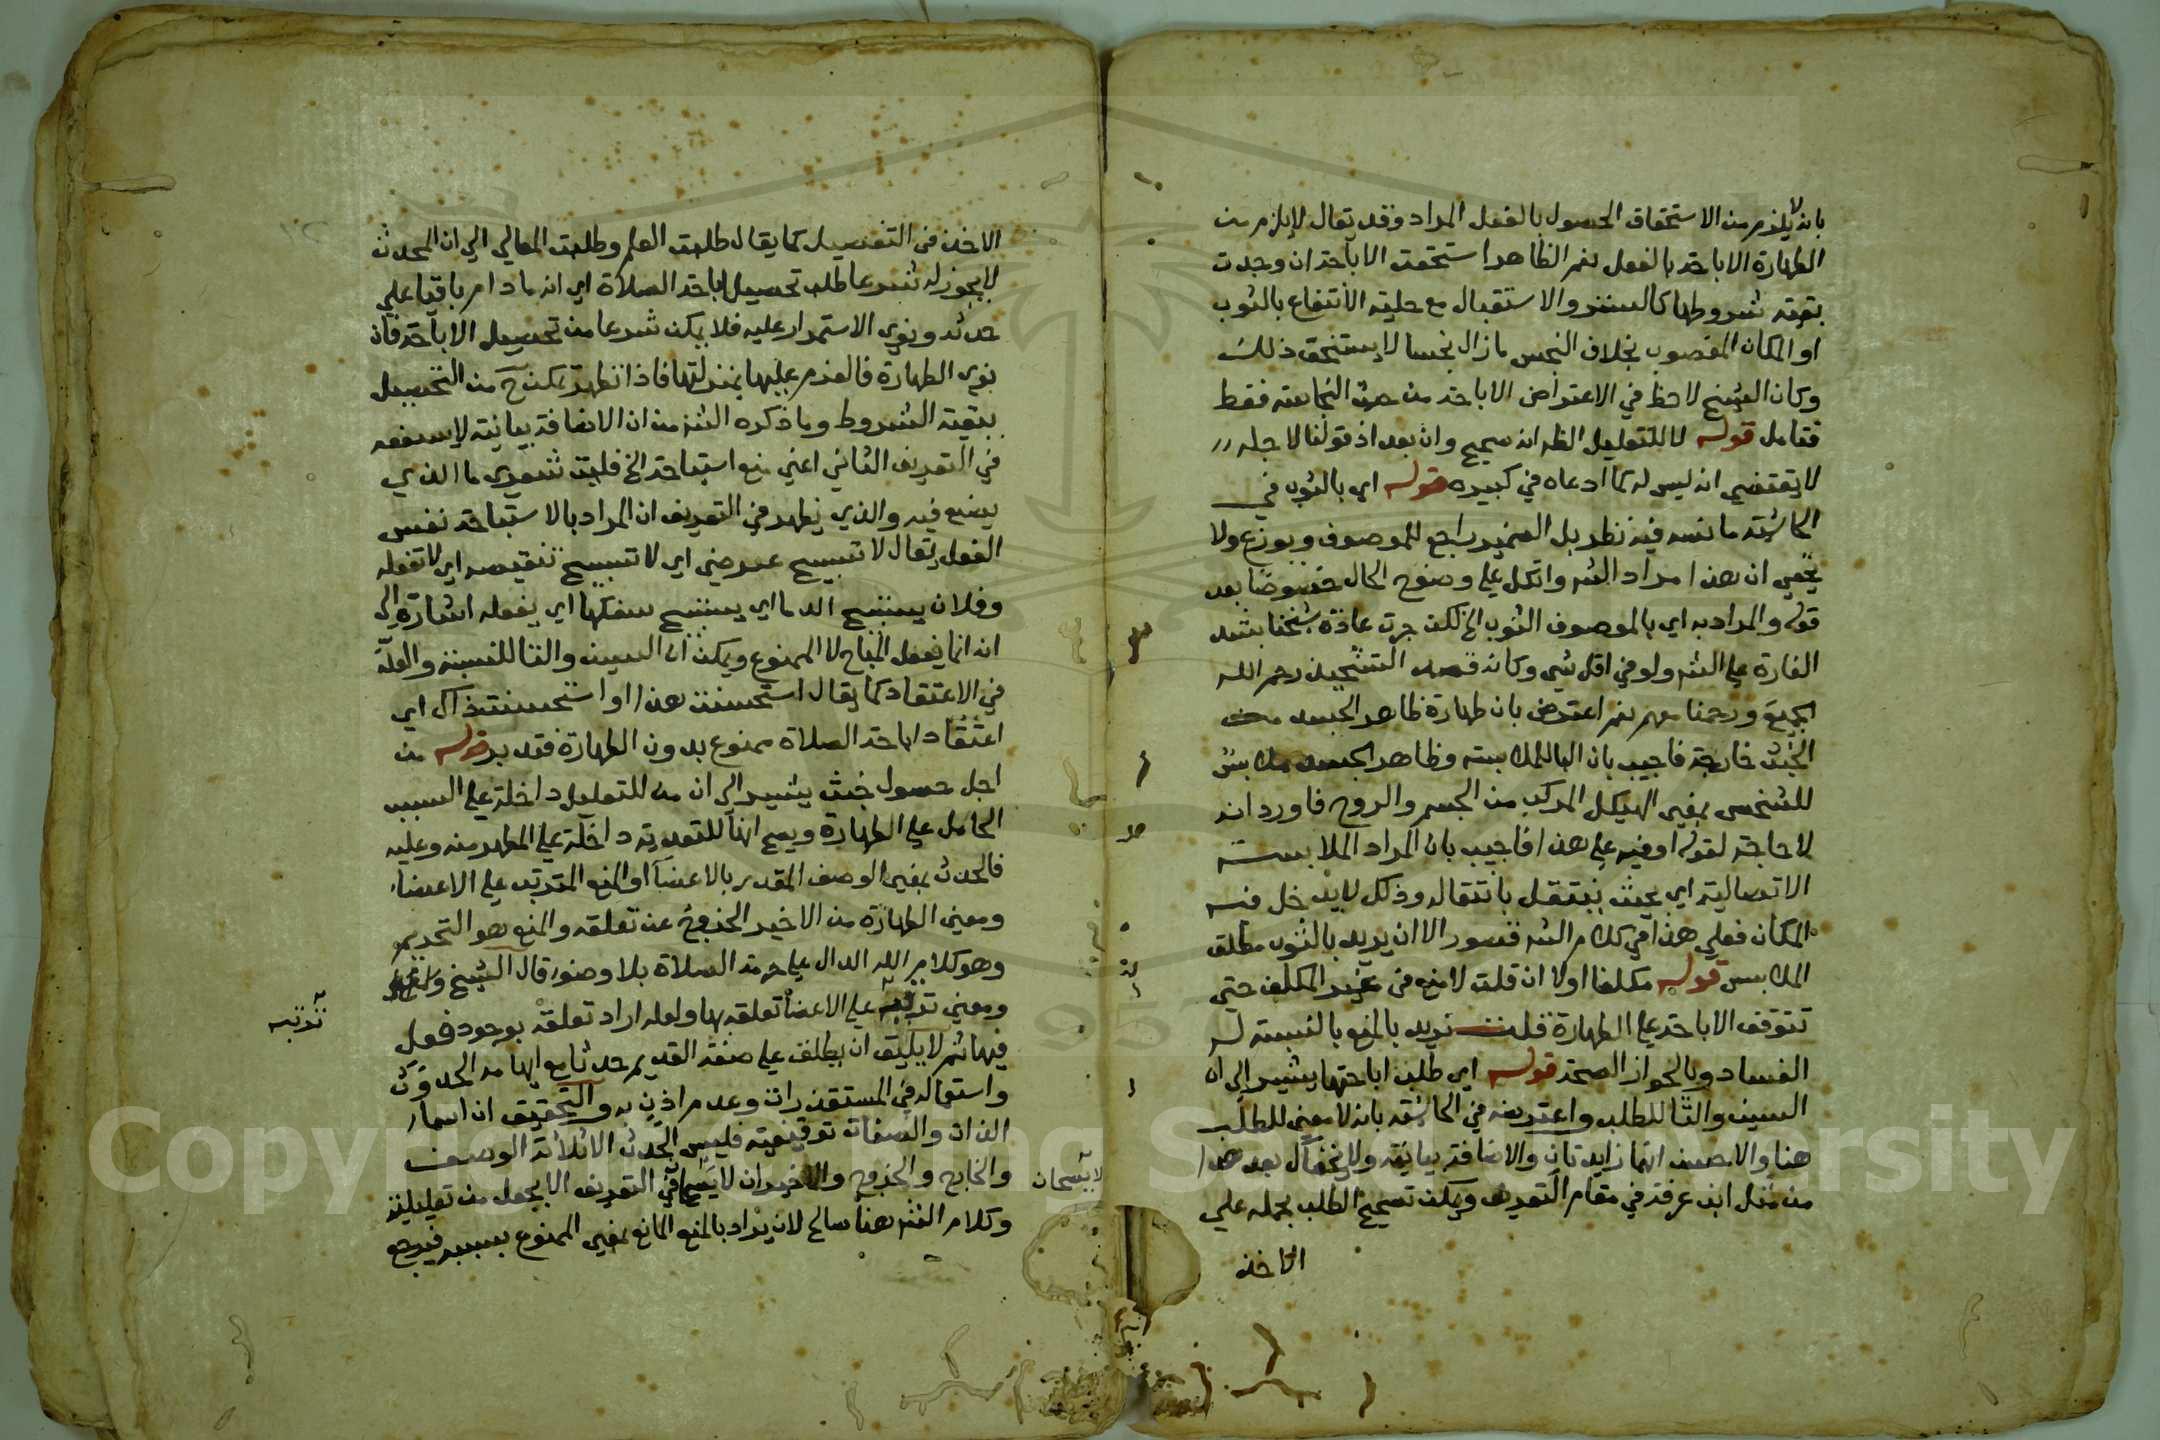 بانه لا يلزم من الاستحقاق الحصول بالفعل المراد وقد يقال لا يلزم من
الطهارة الاباحة بالفعل نعم الظاهر استحقت الاباحة ان وجدت
بقية شروطها كالستر والاستقبال مع حلية الانتفاع بالثوب
او المكان المغصوب بخلاف النجس ما زال نجسا لا يستحق ذلك
وكان الشيخ لاحظ في الاعتراض الاباحة من حيث النجاسة فقط
فتامل قوله لا للتعليل الظ انه صحيح وان بعد اذ قولنا لاجله
لا يقتضي انه ليس له كما ادعاه في كبيره قوله اي بالثوب في
الحاشية ما نصه فيه نظر بل الضمير راجع للموصوف ويوزع ولا
يخفي ان هذا مراد الشه واتكل علي وضوح الحال خصوصا بعد
قوله والمراد به اي بالموصوف الثوب الخ لكن جرت عادة شيخنا بشد
الغارة علي الشه ولو في اقل شي وكانه قصد التشحيذ رحم الله
الجميع ورحمنا معهم نعم اعترض بان طهارة ظاهر الجسد من
الخبث خارجة فاجيب بان البا للملابسة وظاهر الجسد ملابس
للشخص بمعني الهيكل المركب من الجسم والروح فاورد انه
لا حاجة لقوله او فيه علي هذا فاجيب بان المراد الملابسة
الاتصالية اي بحيث ينتقل بانتقاله وذلك لا يدخل فيه
المكان فعلي هذا في كلام الشه قصور الا ان يريد بالثوب مطلق
الملابس قوله مكلفا اولا ان قلت لا منع في غير المكلف حتي
تتوقف الاباحة علي الطهارة قلت نريد بالمنع بالنسبة له
الفساد وبالجواز الصحة قوله اي طلب اباحتها يشير الي ان
السين والتا للطلب واعترضه في الحاشية بانه لا معني للطلب
هنا والاحسن انهما زايدتان والاضافة بيانية ولا يخفاك بعد هذا
من مثل ابن عرفة في مقام التعريف ويمكن تصحيح الطلب بحمله علي
الاخذ
الاخذ في التحصيل كما يقال طلبت العلم وطلبت المعالي الي ان المحدث
لا يجوز له شرعا طلب تحصيل اباحة الصلاة اي انه ما دام باقيا علي
حدثه ونوي الاستمرار عليه فلا يمكن شرعا من تحصيل الاباحة فان
نوي الطهارة فالعزم عليها بمنزلتها فاذا تطهر تمكن ح من التحصيل
ببقية الشروط وما ذكره الشه من ان الاضافة بيانية لا ينفعه
في التعريف الثاني اعني منع استباحة الخ فليت شعري ما الذي
يصنع فيه والذي يظهر في التعريف ان المراد بالاستباحة نفس
الفعل يقال لا تستبيح عرضي اي لا تستبيح تنقيصه اي لا تفعله
وفلان يستبيح الدما اي يستبيح سفكها اي يفعله اشارة الي
انه انما يفعل المباح لا الممنوع ويمكن ان السين والتا للنسبة والعلة
في الاعتقاد كما يقال استحسنت هذا او استحسنت ذاك اي
اعتقاد اباحة الصلاة ممنوع بدون الطهارة فتدبر قوله من
اجل حصول خبث يشير الي ان من للتعليل داخلة علي السبب
الحامل علي الطهارة ويصح انها للتعدية داخلة علي المطهر منه وعليه
فالحدث بمعني الوصف المقدر بالاعضا او المنع المترتب علي الاعضا
ومعني الطهارة من الاخير الخروج عن تعلقه والمنع هو التحريم
وهو كلام الله الدال علي حرمة الصلاة بلا وضوء قال الشيخ
ومعني ترتبه علي الاعضا تعلقه بها ولعله اراد تعلقه بوجود فعل
ترتبه
فيها ثم لا يليق ان يطلق علي صفة القديم حدثا مع ايهامه الحدوث
واستعماله في المستقذرات وعدم اذن به والتحقيق ان اسما
الذات والصفات توقيفية فليس الحدث الا ثلاثة الوصف
والخارج والخروج والاخيران لا يصحان في التعريف الا بجعل من تعليلية
لا يصحان
وكلام الشه هنا صالح لان يراد بالمنع المانع بمعني الممنوع بسببه فيرجع